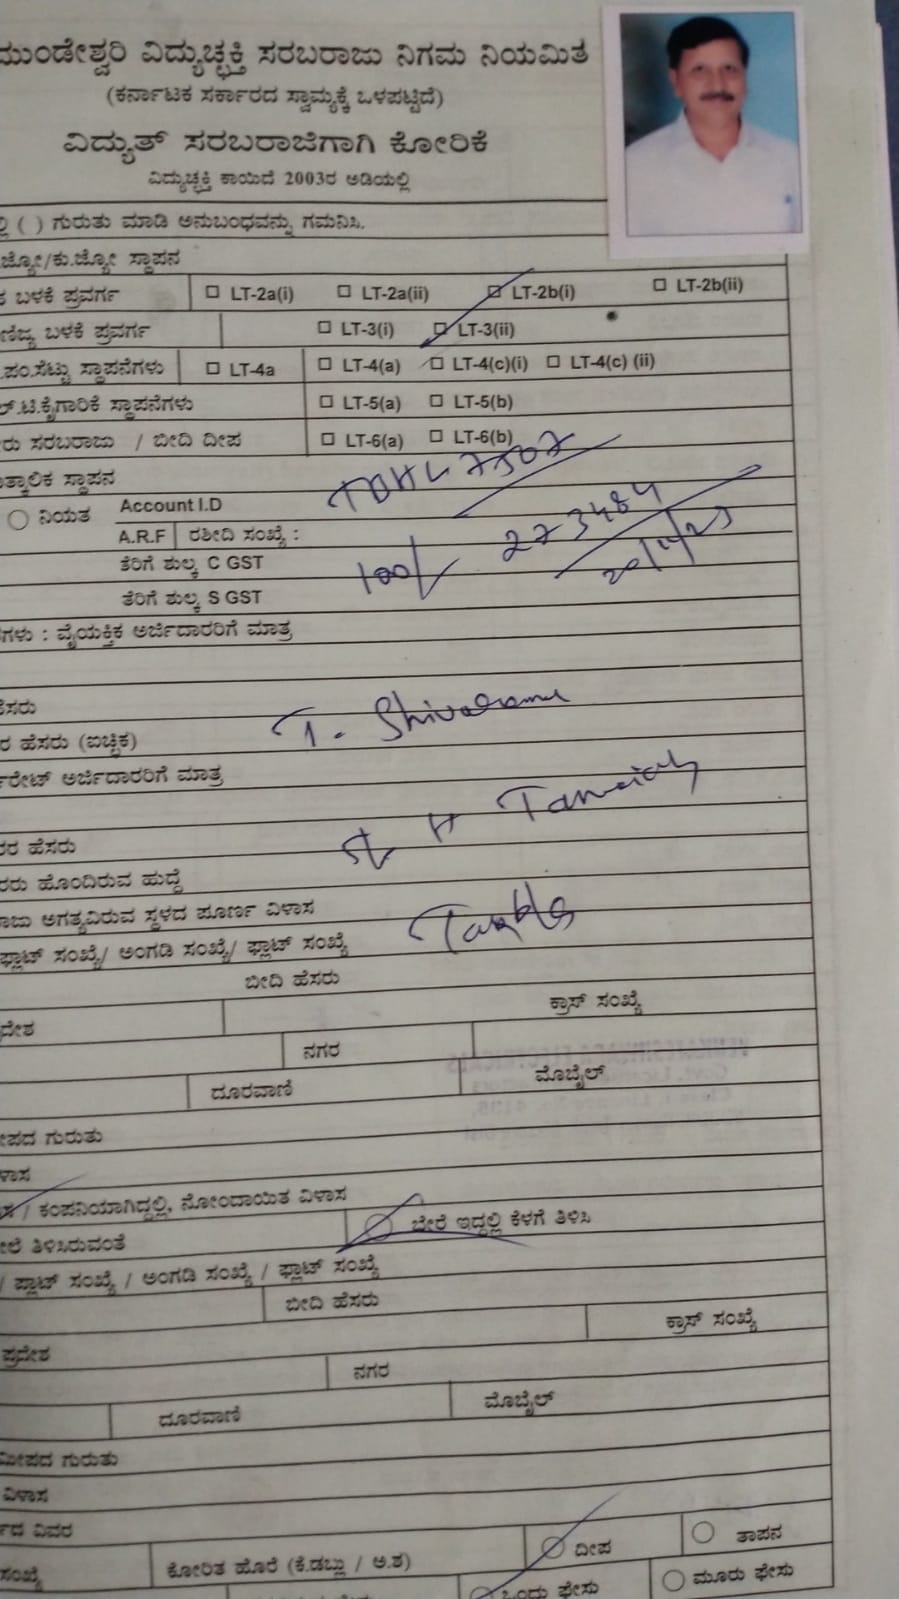 ಮುಂಡೇಶ್ವರಿ ವಿದ್ಯುಚ್ಛಕ್ತಿ ಸರಬರಾಜು ನಿಗಮ ನಿಯಮಿತ
(ಕರ್ನಾಟಕ ಸರ್ಕಾರದ ಸ್ವಾಮ್ಯಕ್ಕೆ ಒಳಪಟ್ಟಿದೆ)
ವಿದ್ಯುತ್ ಸರಬರಾಜಿಗಾಗಿ ಕೋರಿಕೆ
ವಿದ್ಯುಚ್ಛಕ್ತಿ ಕಾಯಿದೆ 2003ರ ಅಡಿಯಲ್ಲಿ
ಲ್ಲಿ ( ) ಗುರುತು ಮಾಡಿ ಅನುಬಂಧವನ್ನು ಗಮನಿಸಿ.
ಜ್ಯೋ/ಕು.ಜ್ಯೋ ಸ್ಥಾಪನ
ಬಳಕೆ ಪ್ರವರ್ಗ LT-2a(i) LT-2a(ii) LT-2b(i) LT-2b(ii)
ಣಿಜ್ಯ ಬಳಕೆ ಪ್ರವರ್ಗ LT-3(i) LT-3(ii)
.ಪಂ.ಸೆಟ್ಟು ಸ್ಥಾಪನೆಗಳು LT-4a LT-4(a) LT-4(c)(i) LT-4(c) (ii)
ಲ್.ಟಿ.ಕೈಗಾರಿಕೆ ಸ್ಥಾಪನೆಗಳು LT-5(a) LT-5(b)
ರು ಸರಬರಾಜು / ಬೀದಿ ದೀಪ LT-6(a) LT-6(b)
ತ್ಕಾಲಿಕ ಸ್ಥಾಪನ
ನಿಯತ Account I.D 7507
A.R.F ರಶೀದಿ ಸಂಖ್ಯೆ : 273484
ತೆರಿಗೆ ಶುಲ್ಕ C GST 100/-
ತೆರಿಗೆ ಶುಲ್ಕ S GST
ಗಳು : ವೈಯಕ್ತಿಕ ಅರ್ಜಿದಾರರಿಗೆ ಮಾತ್ರ
ಹೆಸರು
ರ ಹೆಸರು (ಐಚ್ಛಿಕ) T. Shivarama
ರೇಟ್ ಅರ್ಜಿದಾರರಿಗೆ ಮಾತ್ರ
ರರ ಹೆಸರು
ರರು ಹೊಂದಿರುವ ಹುದ್ದೆ
ರಾಜು ಅಗತ್ಯವಿರುವ ಸ್ಥಳದ ಪೂರ್ಣ ವಿಳಾಸ
ಫ್ಲಾಟ್ ಸಂಖ್ಯೆ/ ಅಂಗಡಿ ಸಂಖ್ಯೆ/ ಫ್ಲಾಟ್ ಸಂಖ್ಯೆ
ಬೀದಿ ಹೆಸರು
ದೇಶ ಕ್ರಾಸ್ ಸಂಖ್ಯೆ
ನಗರ
ದೂರವಾಣಿ ಮೊಬೈಲ್
ೀಪದ ಗುರುತು
ಳಾಸ
/ ಕಂಪನಿಯಾಗಿದ್ದಲ್ಲಿ, ನೋಂದಾಯಿತ ವಿಳಾಸ
ಲೆ ತಿಳಿಸಿರುವಂತೆ ಬೇರೆ ಇದ್ದಲ್ಲಿ ಕೆಳಗೆ ತಿಳಿಸಿ
/ ಪ್ಲಾಟ್ ಸಂಖ್ಯೆ / ಅಂಗಡಿ ಸಂಖ್ಯೆ / ಫ್ಲಾಟ್ ಸಂಖ್ಯೆ
ಬೀದಿ ಹೆಸರು
ಪ್ರದೇಶ ಕ್ರಾಸ್ ಸಂಖ್ಯೆ
ನಗರ
ದೂರವಾಣಿ ಮೊಬೈಲ್
ಮೀಪದ ಗುರುತು
ವಿಳಾಸ
ದ ವಿವರ
ಸಂಖ್ಯೆ ಕೋರಿತ ಹೊರೆ (ಕೆ.ಡಬ್ಲು / ಅ.ಶ) ದೀಪ ತಾಪನ
ಒಂದು ಫೇಸು ಮೂರು ಫೇಸು